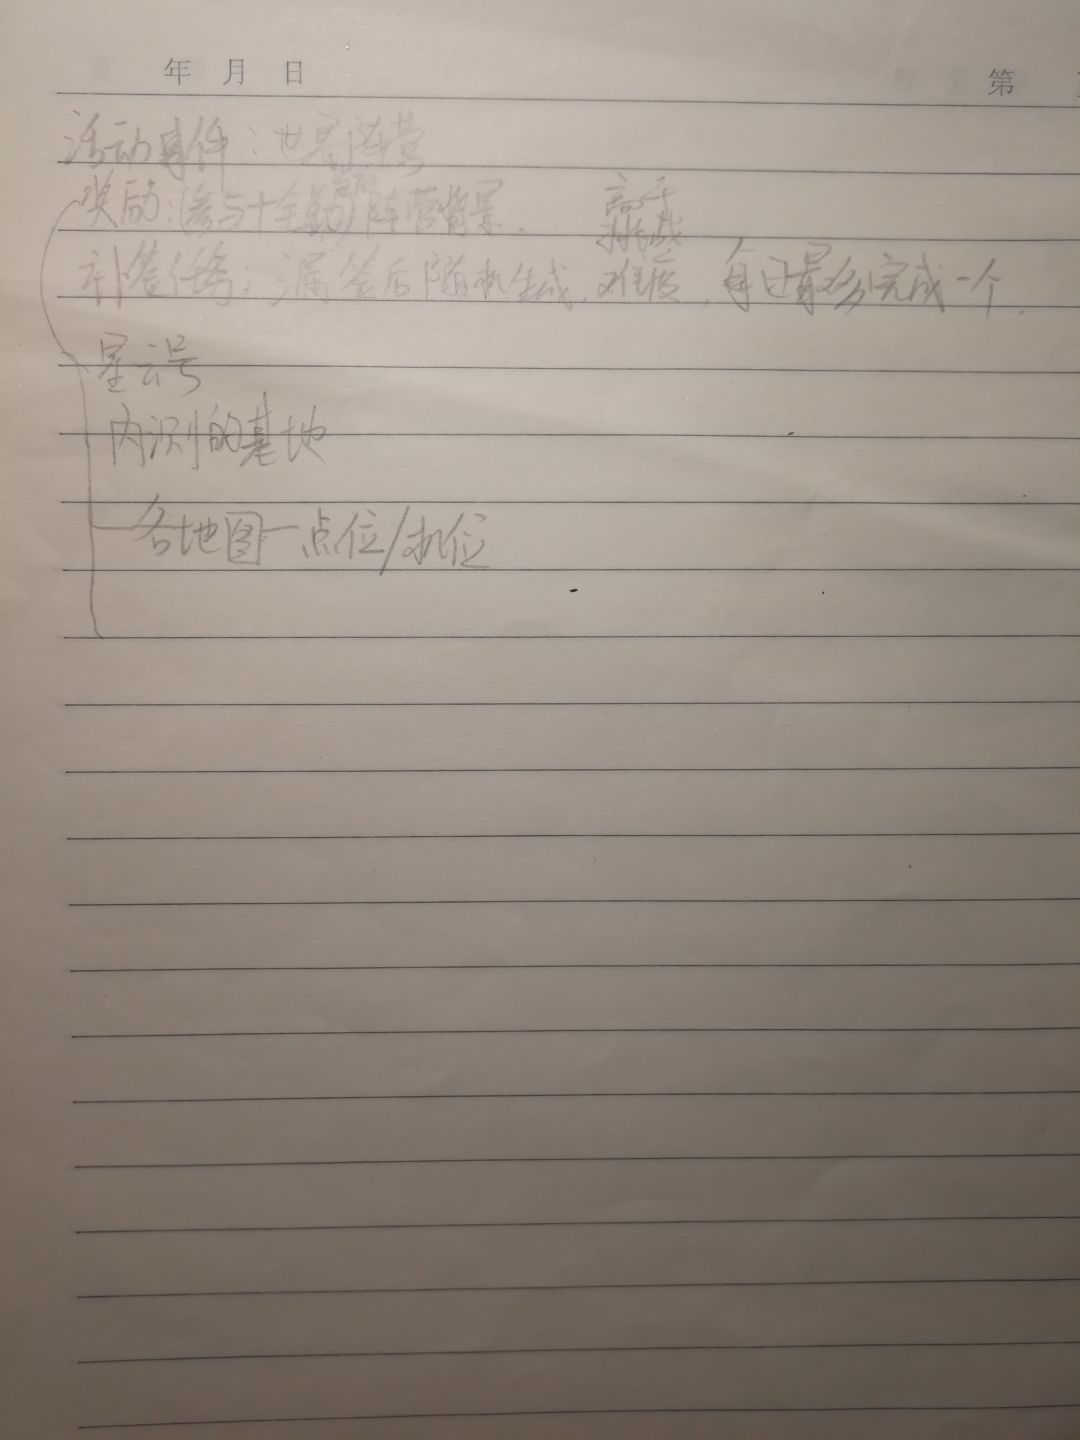 年 月 日 第
活动事件：世界阵营
奖励：参与+全勤 阵营背景.
高于
挑战
补签任务：漏签后随机生成.难度，每日最多完成一个.
星云号
内测的基地
各地图一点位/机位